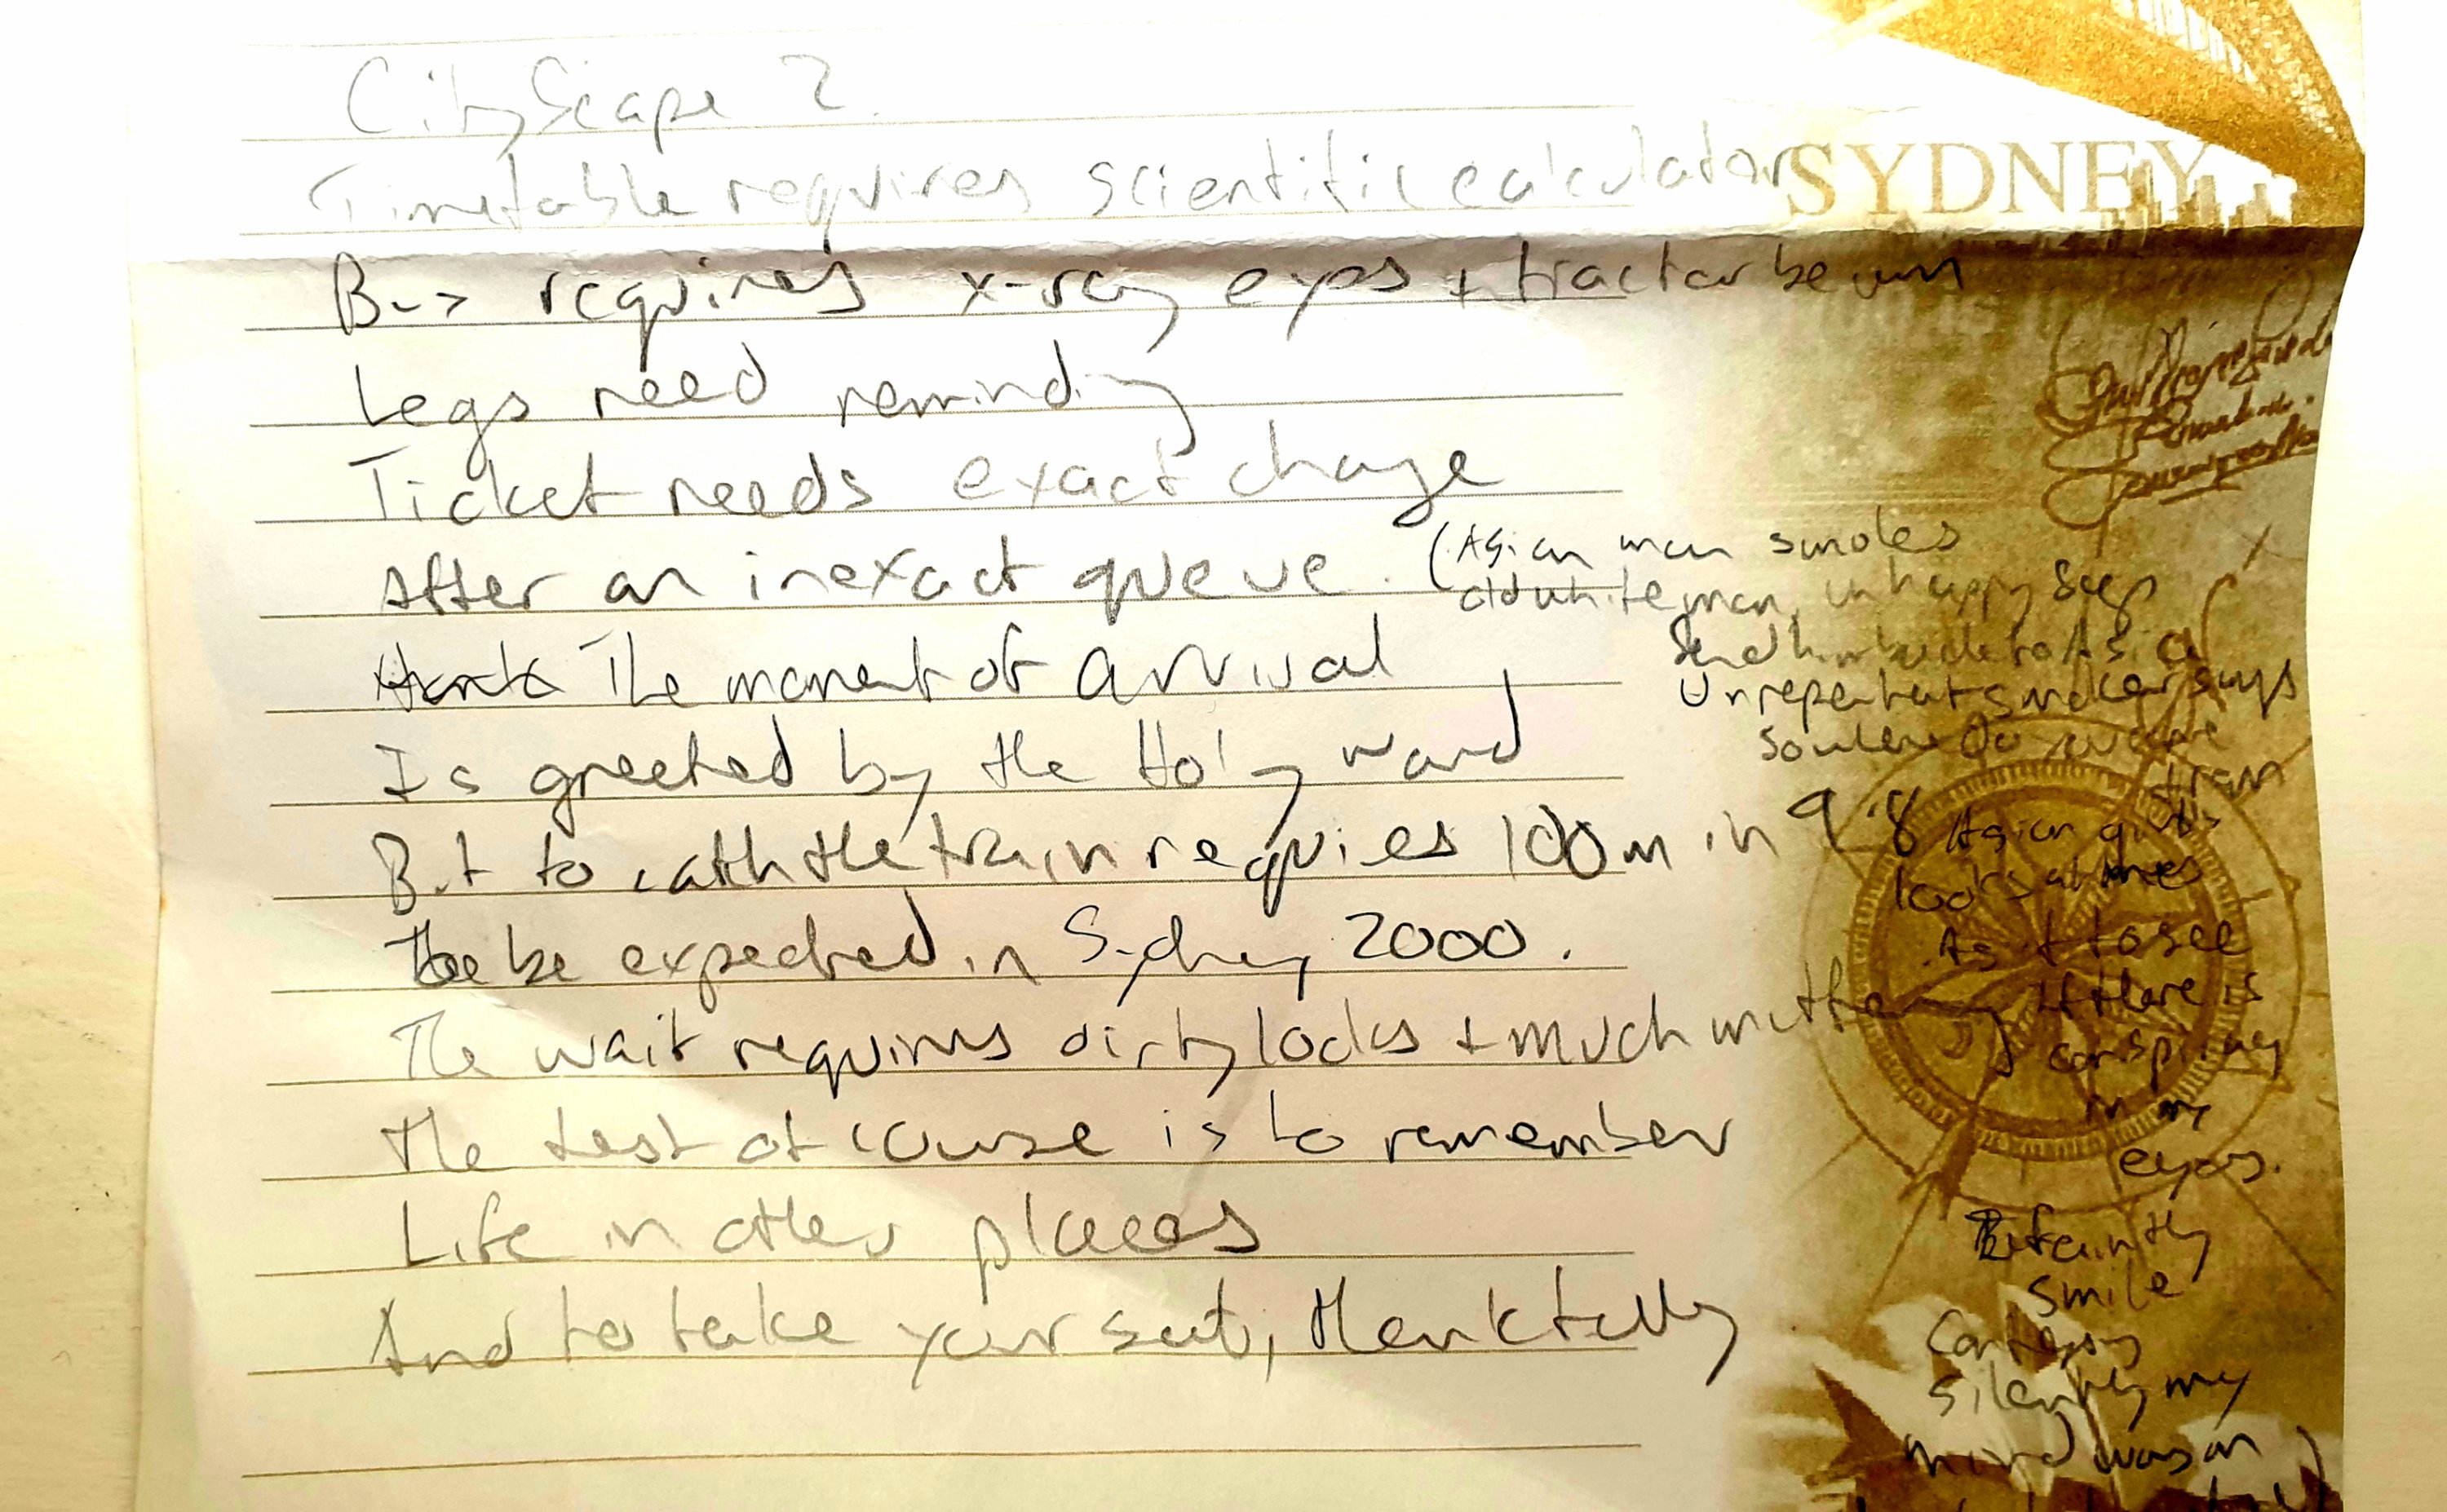 CityScape 2.
Timetable requires scientific calculator
SYDNEY
Bus requires x-ray eyes + tractor beam
Legs need reminding
Ticket needs exact change
After an inexact queue.
The moment of arrival
Is greeted by the Holy ward
But to catch the train requies 100m in 9.8
be expected in Sydney 2000.
The wait requires dirty looks + much muttering
The test of course is to remember
Life in other places
And to take your seat, thankfully
(Asian man smokes
old white man, unhappy says
Send him back to Asia
Unrepentant smoker says
train
Asian
looks at
As if to see
if there is
conspiracy
in my
eyes.
I faintly
smile
silently my
mind was on